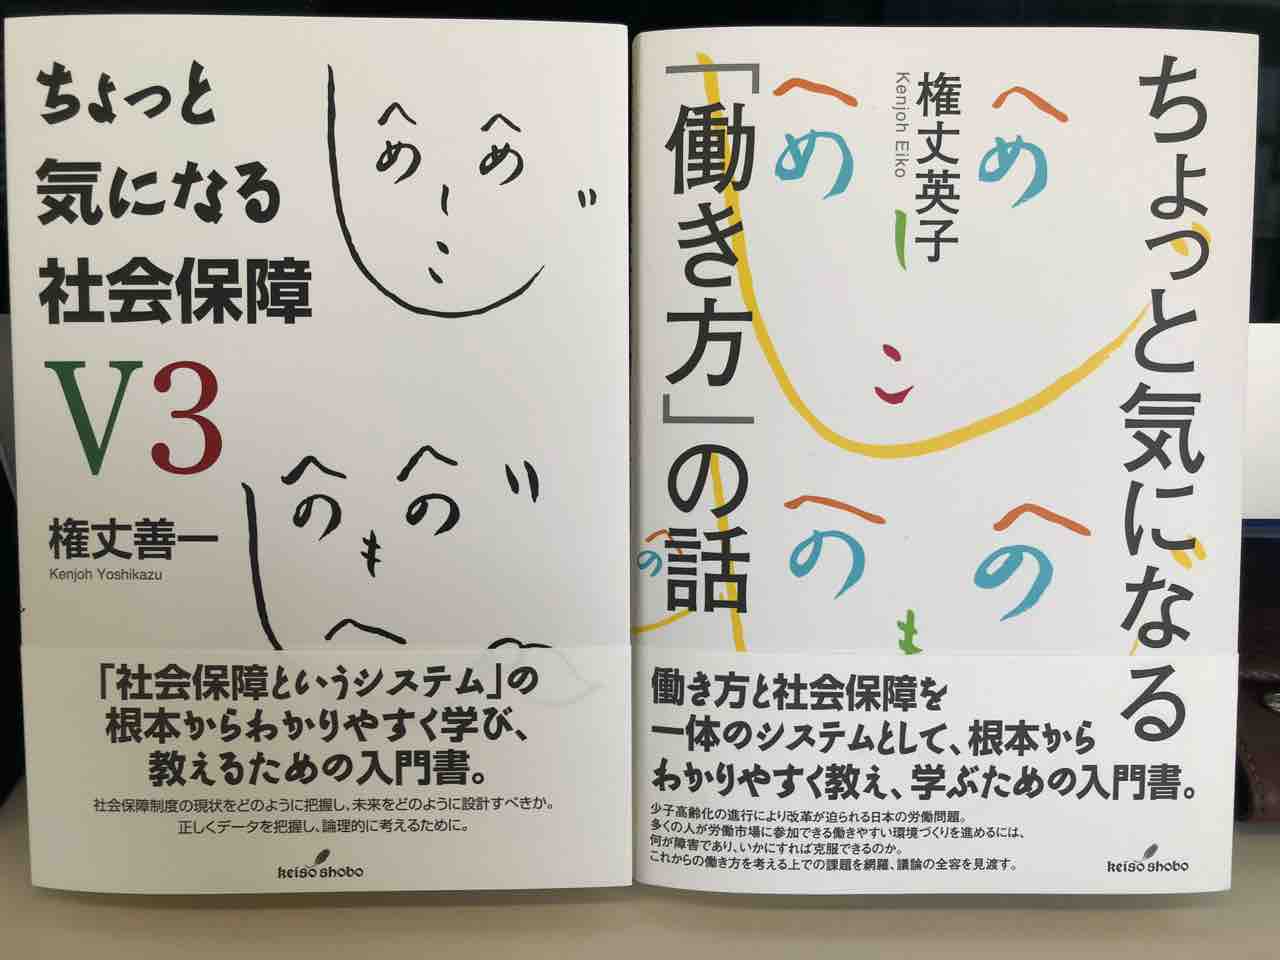 ちょっと
気になる
社会保障
V3
権丈善一
Kenjoh Yoshikazu
へ へ
め め
し
こ
〃
へ へ
の の
も
へ
「社会保障というシステム」の
根本からわかりやすく学び、
教えるための入門書。
社会保障制度の現状をどのように把握し、未来をどのように設計すべきか。
正しくデータを把握し、論理的に考えるために。
keiso shobo
ちょっと気になる
「働き方」の話
権丈英子
Kenjoh Eiko
へ へ
め め
し
こ
へ へ
の の
も
へ
の
働き方と社会保障を
一体のシステムとして、根本から
わかりやすく教え、学ぶための入門書。
少子高齢化の進行により改革が迫られる日本の労働問題。
多くの人が労働市場に参加できる働きやすい環境づくりを進めるには、
何が障害であり、いかにすれば克服できるのか。
これからの働き方を考える上での課題を網羅、議論の全容を見渡す。
keiso shobo